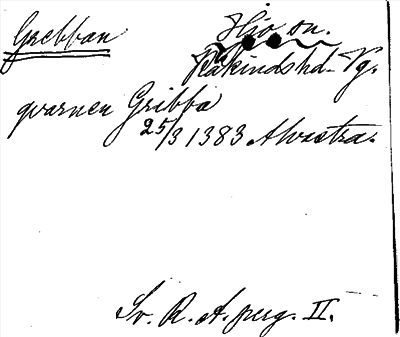 Grebban
Hjo sn.
Kåkinds hd. Vg.
qvarnen Gribba
25/3 1383 Alvastra.
Sv. R. A. perg. II.